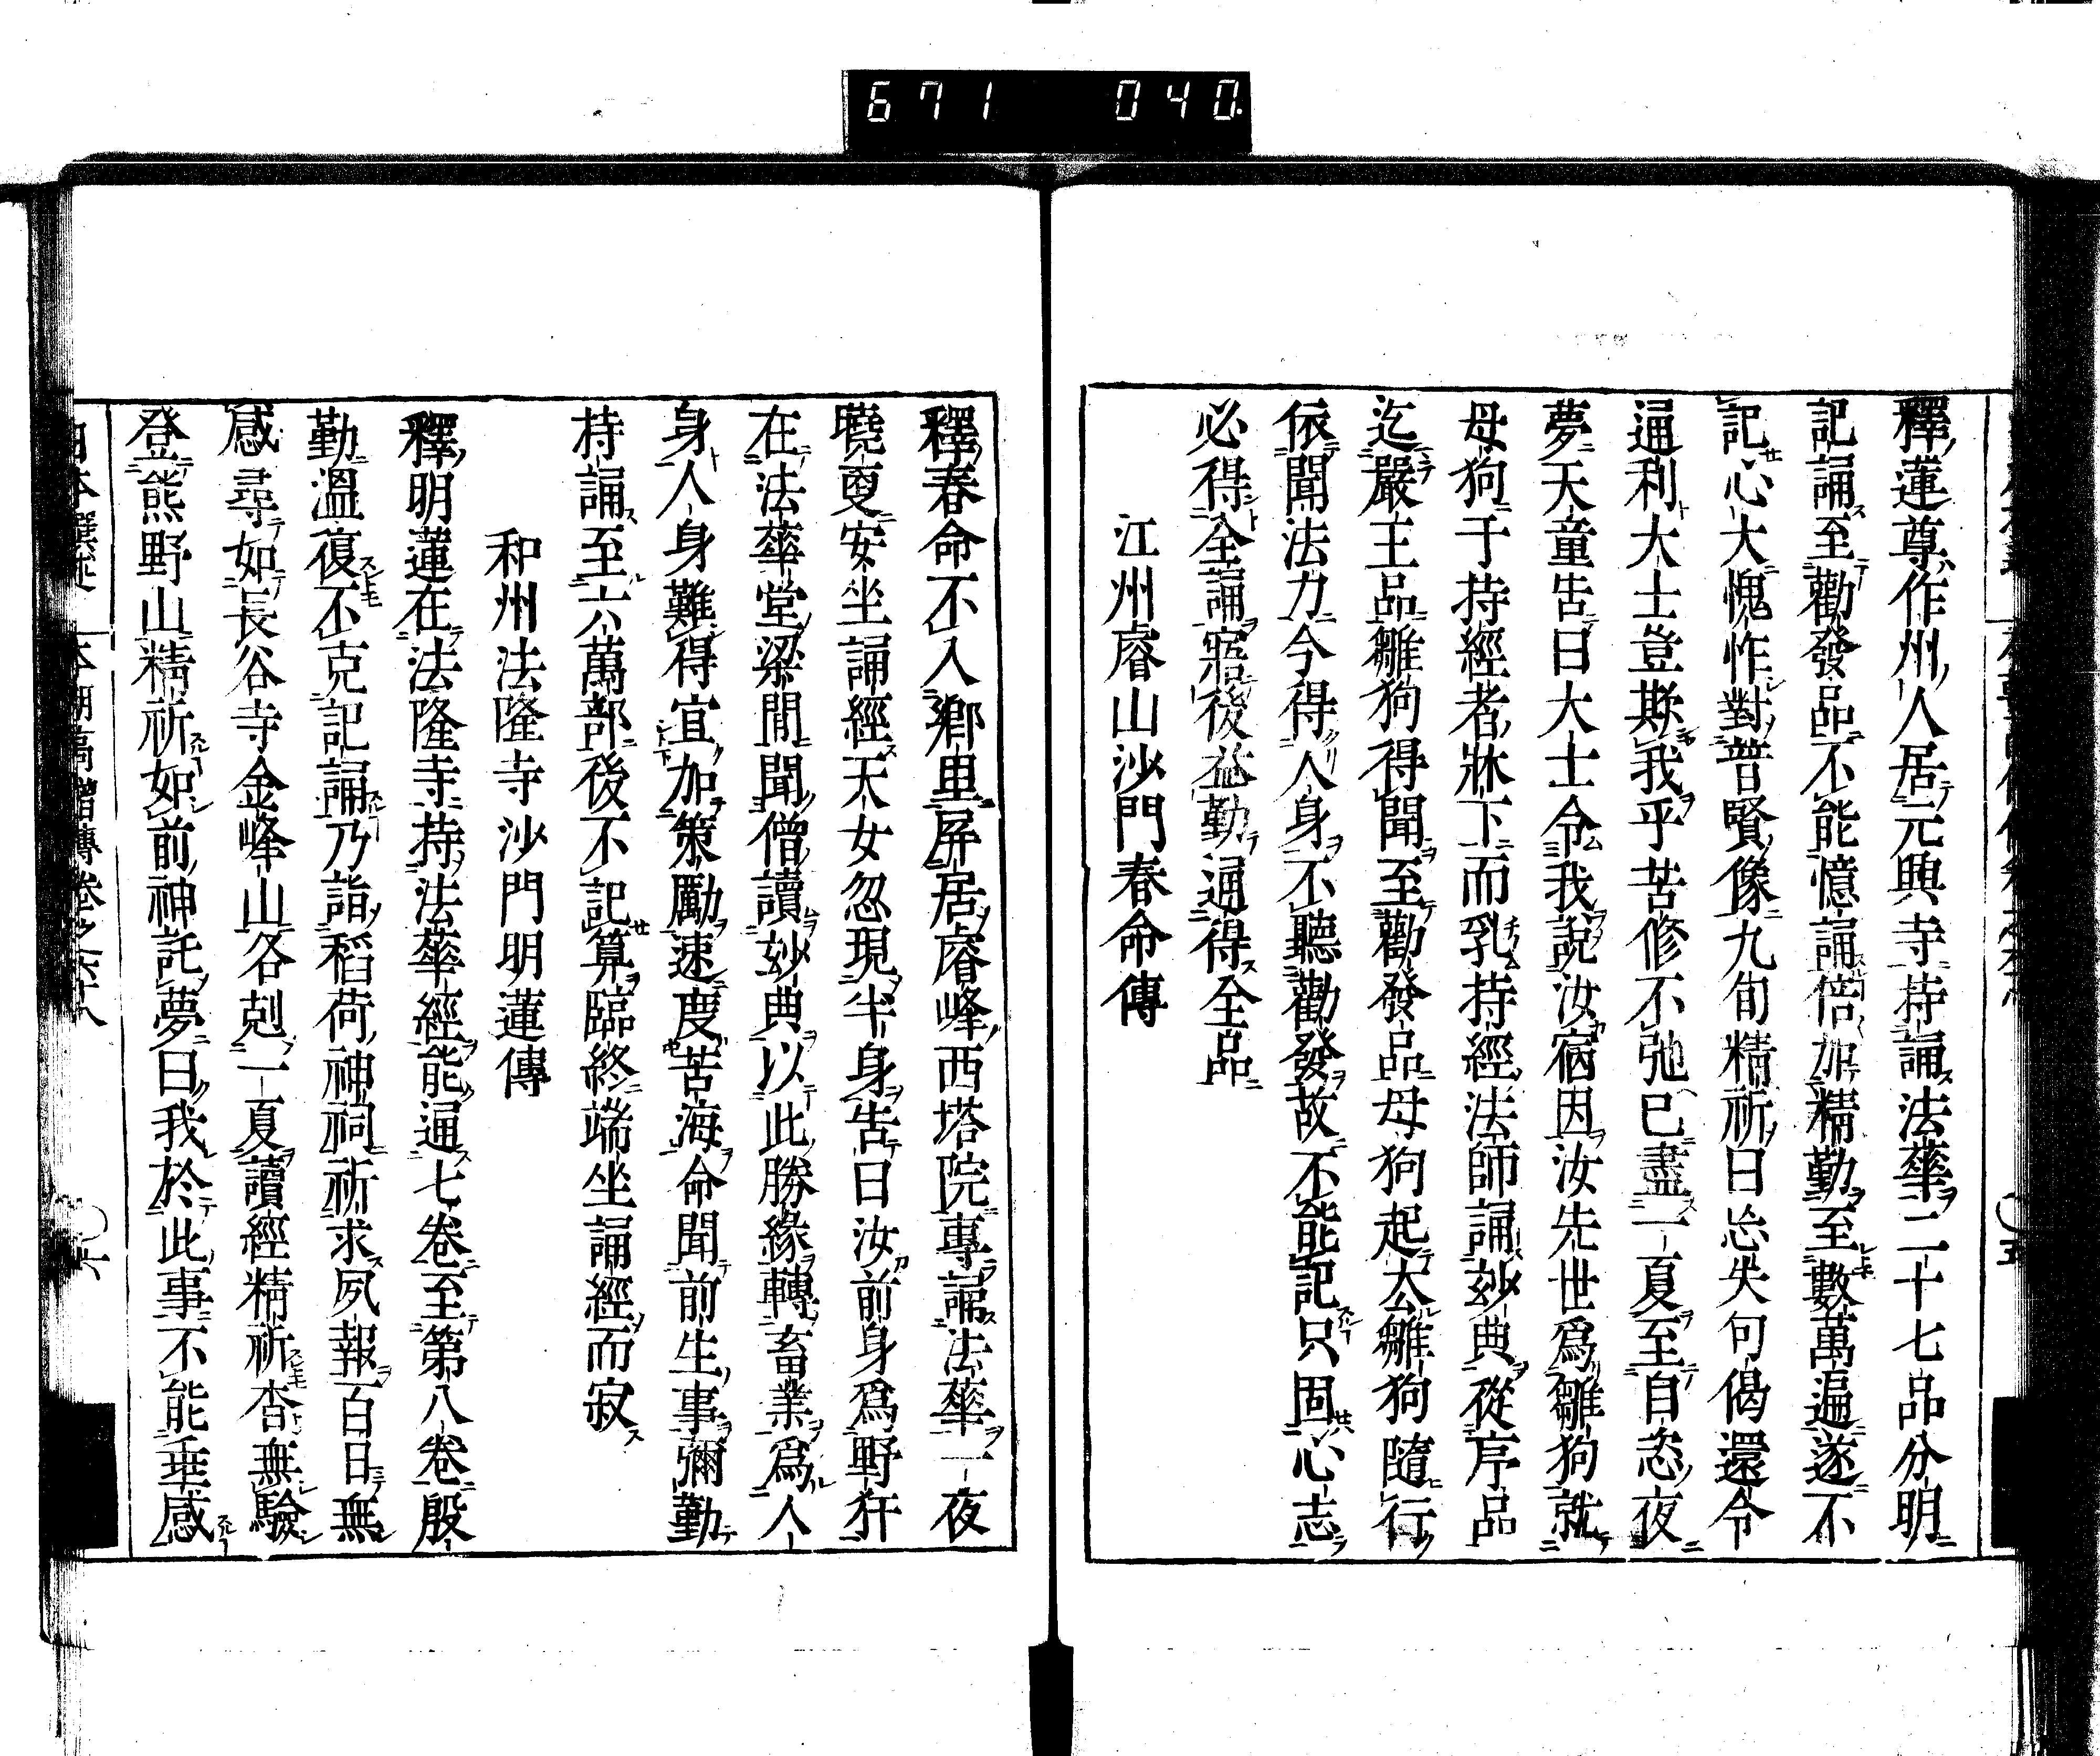 671 040
釋蓮尊作州人居元興寺持誦法華二十七品分明
記誦至勸發品不能憶誦倍加精勤至數萬遍遂不
記心大愧怍對普賢像九旬精祈曰忘失句偈還令
通利大士豈欺我乎苦修不弛已盡一夏至自恣夜
夢天童告曰大士令我說汝宿因汝先世爲雛狗就
母狗于持經者牀下而乳持經法師誦妙典從序品
迄嚴王品雛狗得聞至勸發品母狗起去雛狗隨行
依聞法力今得人身不聽勸發故不能記只固心志
必得全誦寤後益勤通得全品
江州睿山沙門春命傳
釋春命不入鄉里屏居睿峰西塔院專誦法華一夜
曉更安坐誦經天女忽現半身告曰汝前身爲野犴
在法華堂梁間聞僧讀妙典以此勝緣轉畜業爲人
身人身難得宜加策勵速度苦海命聞前生事彌勤
持誦至六萬部後不記算臨終端坐誦經而寂
和州法隆寺沙門明蓮傳
釋明蓮在法隆寺持法華經能通七卷至第八卷殷
勤溫復不克記誦乃詣稻荷神祠祈求夙報百日無
感尋如長谷寺金峰山各剋一夏讀經精祈杳無驗
登熊野山精祈如前神託夢曰我於此事不能垂感
本朝高僧傳卷之六十八 六